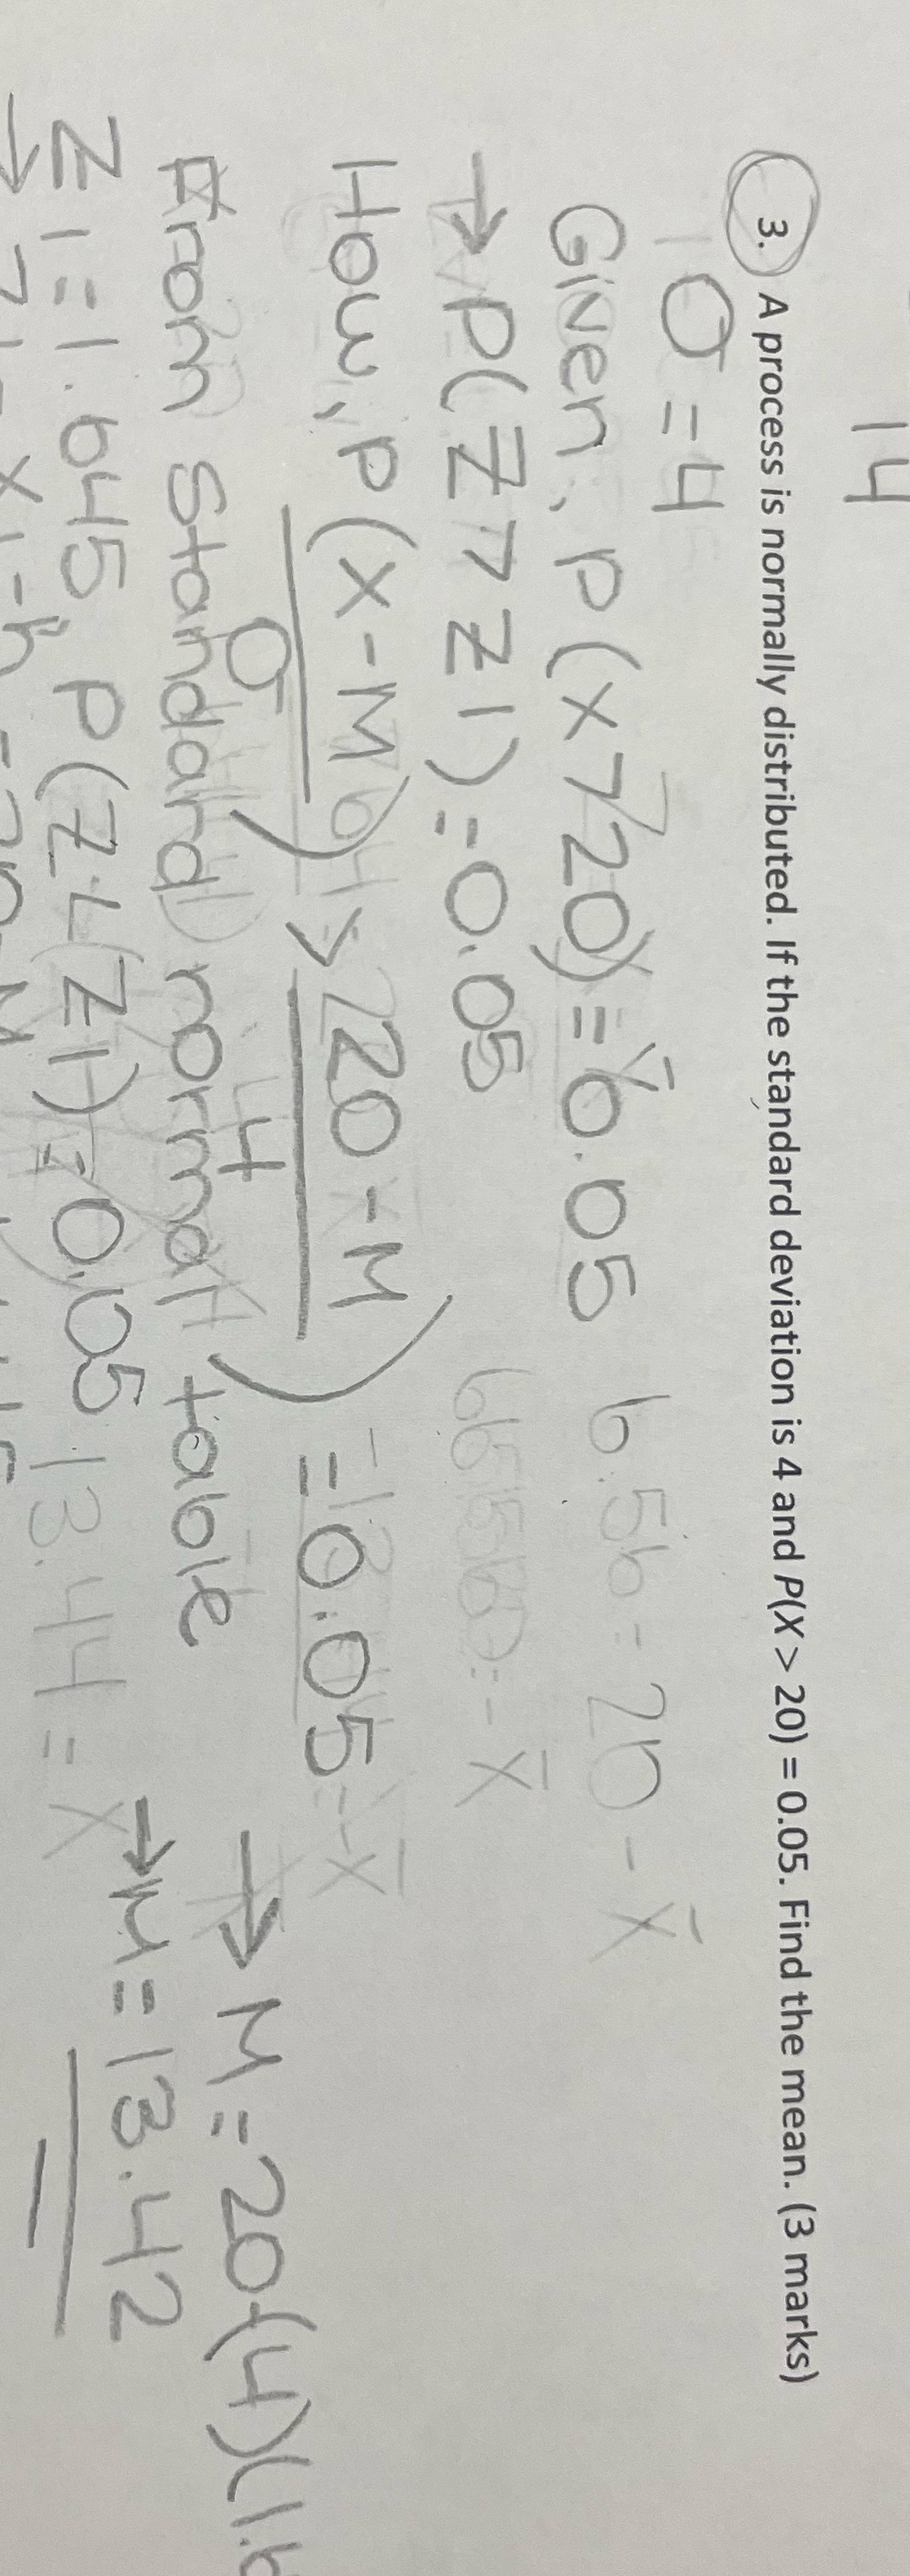 14
3. A process is normally distributed. If the standard deviation is 4 and P(X > 20) = 0.05. Find the mean. (3 marks)
σ = 4
Given, P(x>20) = 0.05
6.56 = 20 - x̄
→ P(Z > Z1) = 0.05
How, P(x-M/σ) > 20-M/4) = 0.05
From standard normal table
Z1 = 1.645, P(Z<(Z1) = 0.05
13.44 = x
→ M = 20-(4)(1.6
→ M = 13.42